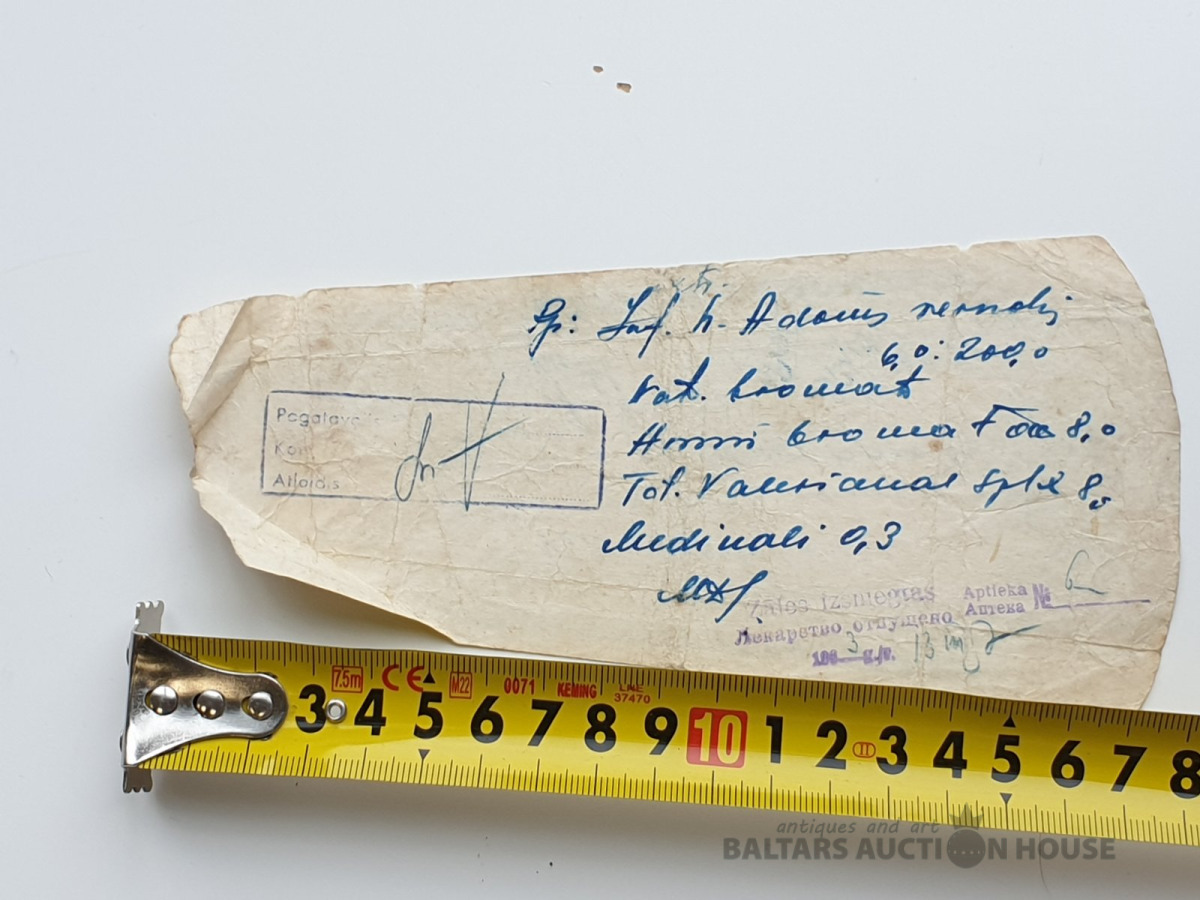 Rp: Inf. h. Adonis vernalis
6,0: 200,0
Nat. bromat
Ammi bromat āā 8,0
Tct. Valerianae splx 8,0
Medinali 0,3
MDS.
Pagatavo
Kon
Atlaidis
Zāles izsniegtas
Лекарство отпущено
Aptieka
Аптека
№ 6
196 3 g./г. 13
3 4 5 6 7 8 9 10 1 2 3 4 5 6 7 8
7.5m CE M22 0071 KEMING LNE
37470
II
antiques and art
BALTARS AUCTION HOUSE